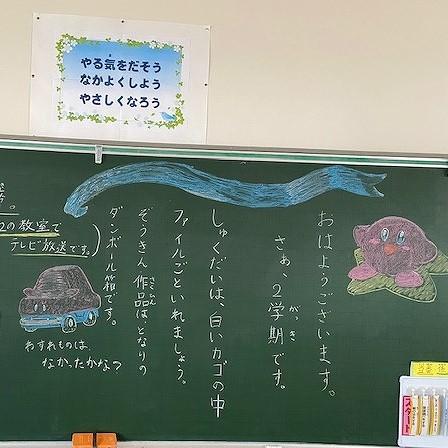 やる気をだそう
なかよくしよう
やさしくなろう
おはようございます。
さぁ、2学期です。
がっき
しゅくだいは、白いカゴの中
ファイルごといれましょう。
ぞうきん作品はとなりの
さくひん
ダンボール箱です。
の教室で
テレビ放送です。)
わすれものは、
なかったかな?
スタート